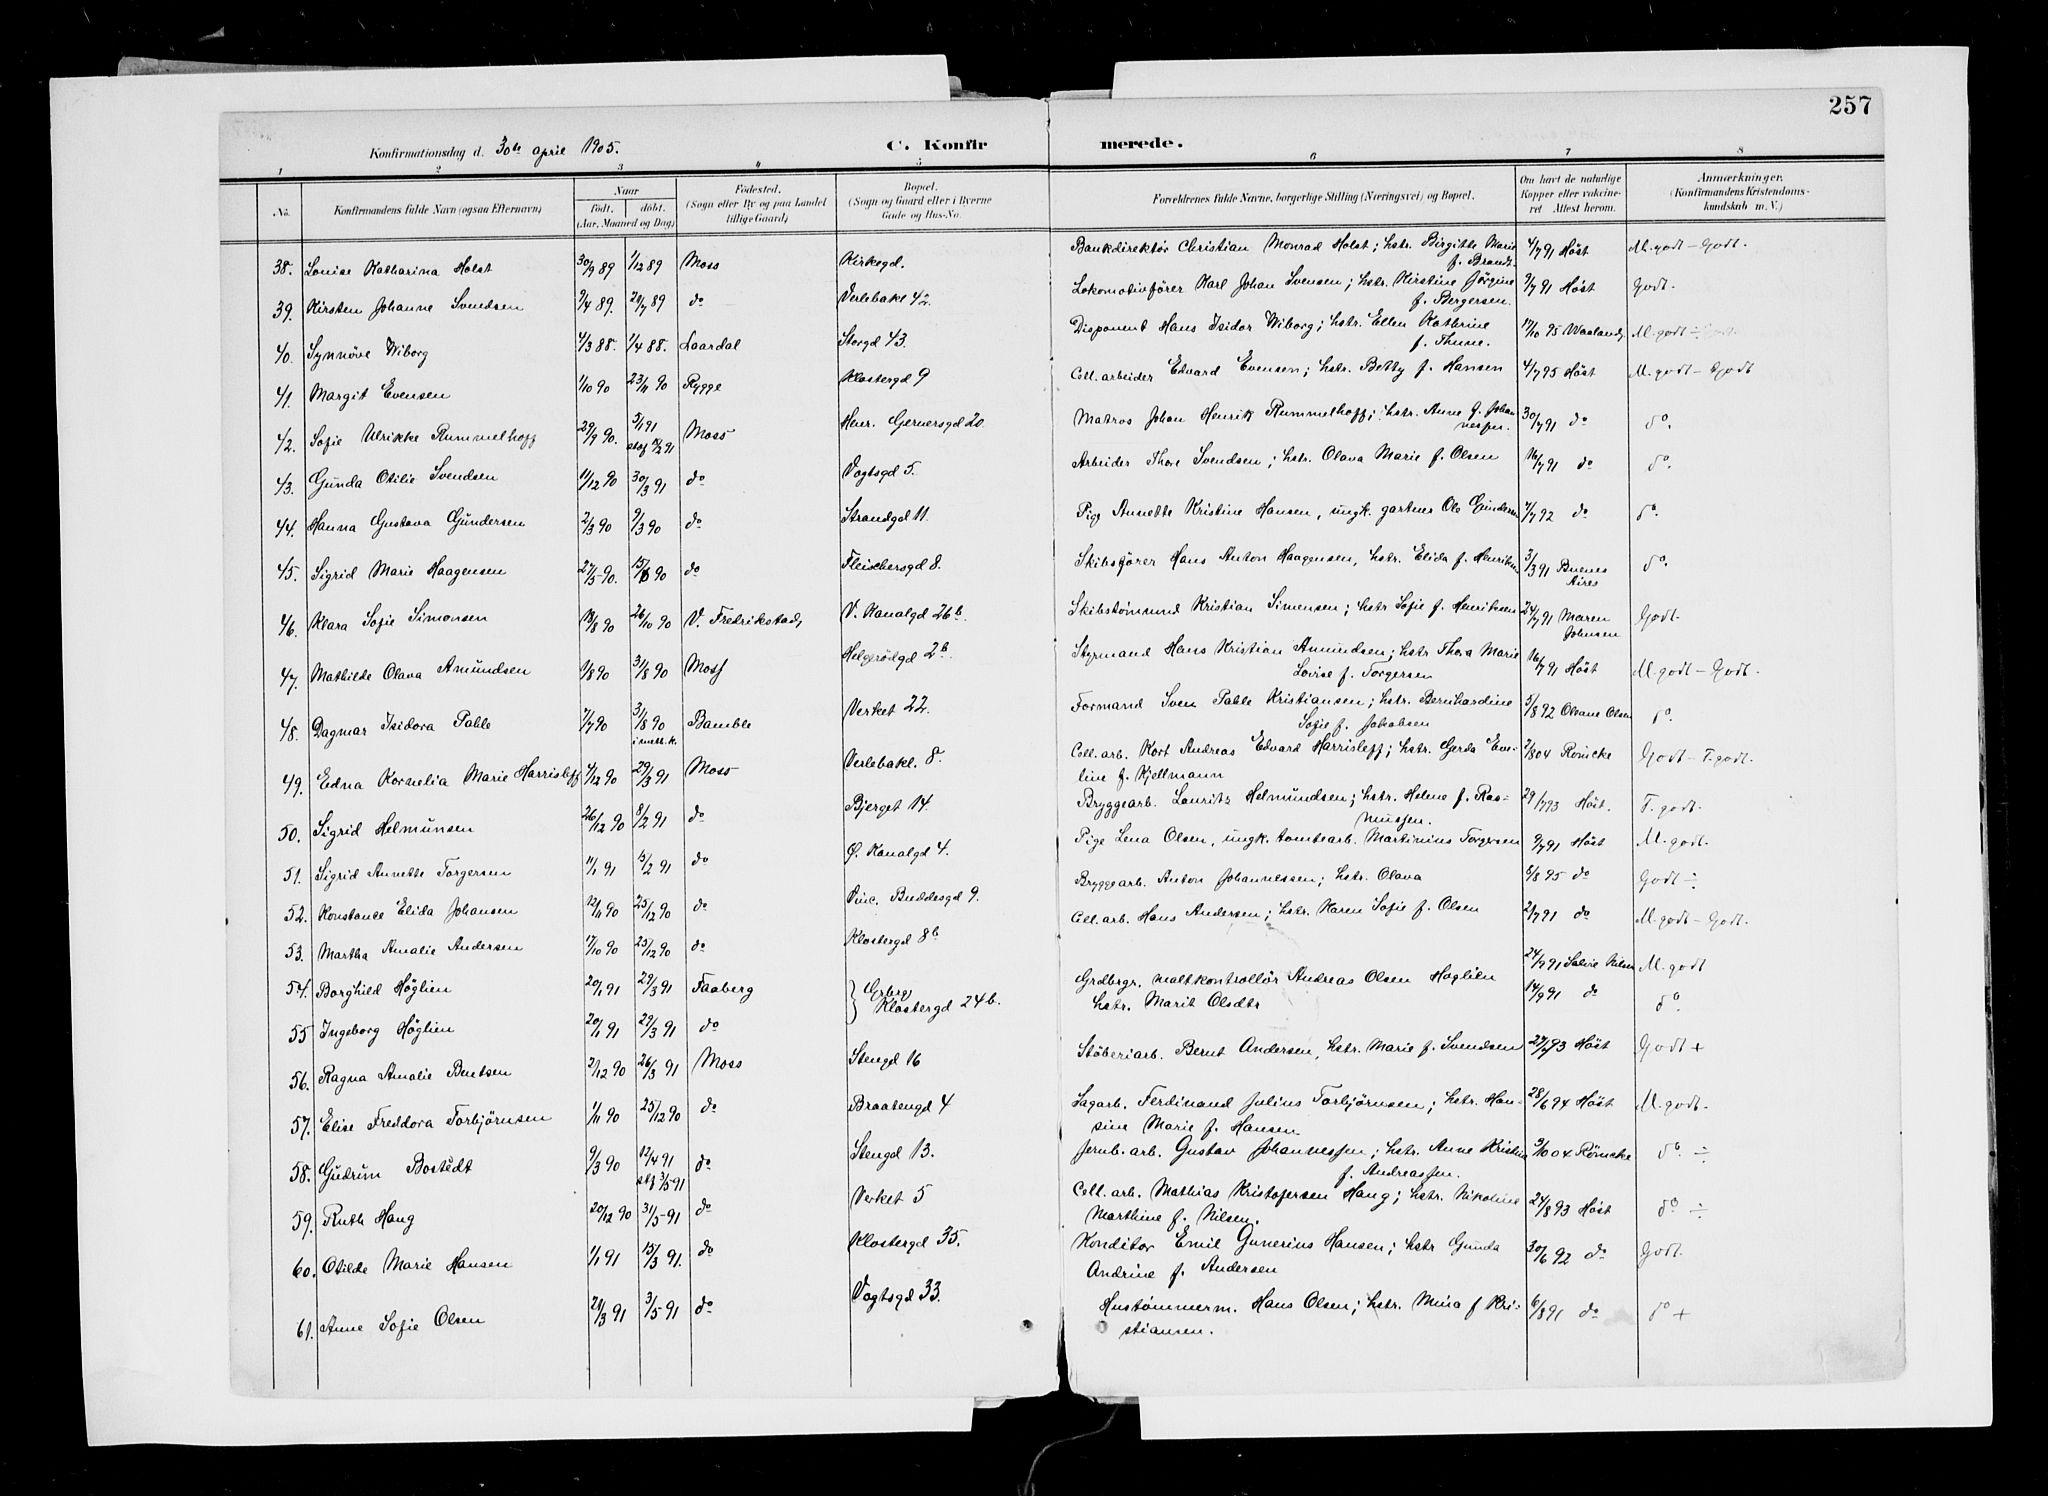 257
Konfirmationsdag d. 30te april 1905. C. Konfirmerede.
1 2 3 4 5 6 7 8
No. Konfirmandens fulde Navn (ogsaa Efternavn) Naar Født, døbt, (Aar, Maaned og Dag) Fødested. (Sogn eller By og paa Landet tillige Gaard) Bopæl. (Sogn og Gaard eller i Byerne Gade og Hus-No. Forældrenes fulde Navne, borgerlige Stilling (Næringsvei) og Bopæl. Om havt de naturlige Kopper eller vakcineret Attest herom. Anmærkninger. (Konfirmandens Kristendomskundskab m. V.)
38. Louise Katharina Holst 30/9 89 1/12 89 Moss Kirkegd. Bankdirektør Christian Monrad Holst; hstr. Birgitte Marie f. Brandt. 4/7 91 Höst M. godt – Godt.
39. Kirsten Johanne Svendsen 9/4 89. 28/7 89 do Verlebakl 42. Lokomotivfører Karl Johan Svensen; hstr. Kirstine Jörgine f. Bergersen. 9/7 91 Höst Godt.
40. Synnöve Wiborg 4/3 88. 1/4 88. Laardal Storgd 43. Disponent Hans Isidor Wiborg; hstr. Ellen Kathrine f. Thune. 17/10 95 Waaland, M. godt
41. Margit Evensen 1/10 90 23/11 90 Rygge Klostergd 9 Cell. arbeider Edvard Evensen; hstr. Betty f. Hansen 4/7 95 Höst M. godt – Godt
42. Sofie Ulrikke Rummelhoff 29/9 90. 5/1 91 stf 15/2 91 Moss Henr. Gernersgd 20. Matros Johan Henrik Rummelhoff; hstr. Anne G. Johannesfen. 30/7 91 do do.
43. Gunda Otilie Svendsen 11/12 90 30/3 91 do Vogtsgd 5. Arbeider Thore Svendsen; hstr. Olava Marie f. Olsen 16/7 91 do do.
44. Hanna Gustava Gundersen 2/3 90 9/3 90 do Strandgd 11. Pige Annette Kristine Hansen, ungk. gartner Ole Gundersen 7/7 92 do do.
45. Sigrid Marie Haagensen 27/5 90. 15/6 90 do Fleischersgd 8. Skibsfører Hans Anton Haagensen, hstr. Elida f. Henriksen 3/3 91 Buenos Aires do.
46. Klara Sofie Simonsen 18/8 90 26/10 90 V. Fredrikstad, V. Kanalgd 26b. Skibstømmnd Kristian Simensen; hstr Sofie f. Henriksen 24/7 91 Maren Johnsen Godt.
47. Mathilde Olava Amundsen 1/8 90 31/8 90 Moss Helgerödgd 2b. Styrmand Hans Kristian Amundsen; hstr Thora Marie Lovise f. Torgersen 16/7 91 Höst M. godt – Godt.
48. Dagmar Isidora Pahle 7/7 90 31/8 90 i meth. k. Bamble Verket 22. Formand Sven Pahle Kristiansen; hstr. Bernhardine Sofie f. Jakobsen 5/8 92 Oleane Olsen do.
49. Edna Kornelia Marie Harrisleff 4/12 90 29/3 91 Moss Verlebakl. 8. Cell. arb. Kort Andreas Edvard Harrisleff; hstr. Gerda Eveline f. Kjellmann 2/8 04 Römcke Godt – T. godt.
50. Sigrid Helmunsen 26/12 90 8/2 91 do Bjerget 14. Bryggearb. Lauritz Helmundsen; hstr. Helene f. Rasmussen. 29/7 93 Höst. T. godt.
51. Sigrid Annette Torgersen 11/1 91 15/2 91 do Ø. Kanalgd 4. Pige Lena Olsen, ungk. tomtearb. Martinius Torgersen 9/7 91 Höst M. godt.
52. Konstance Elida Johansen 12/11 90 25/12 90 do Vinc. Buddesgd 9. Bryggearb. Anton Johannessen; hstr. Olava 6/8 95 do Godt ÷
53. Martha Amalie Andersen 17/10 90 25/12 90 do Klostergd 8b Cell. arb. Hans Andersen; hstr. Karen Sofie f. Olsen 2/7 91 do M. godt – Godt.
54. Borghild Höglien 20/1 91 29/3 91 Faaberg Klostergd 24b. Grdbrgr. maltkontrollør Andreas Olsen Höglien hstr. Marit Olsdtr 24/9 91 M. godt
55 Ingeborg Höglien 20/1 91 29/3 91 do 14/9 91 do do.
56. Ragna Amalie Bentsen 2/12 90 26/3 91 Moss Stengd 16 Støberiarb. Bernt Andersen, hstr. Marie f. Svendsen 27/7 93 Höst Godt +
57. Elise Freddora Torbjørnsen 1/11 90 25/12 90 do Braatengd 4 Sagarb. Ferdinand Julius Torbjørnsen; hstr. Hansine Marie f. Hansen 28/6 94 Höst M. godt.
58. Gudrun Bostedt 9/3 90 12/4 91 stf 3/5 91 do Stengd 13. Jernb. arb. Gustav Johannessen; hstr. Anne Kristine f. Andreassen. 3/10 04 Römcke do. ÷
59. Ruth Haug 20/12 90 31/5 91 do Verket 5 Cell. arb. Mathias Kristofersen Haug; hstr. Nikoline Marthine f. Nilsen. 24/8 93 Höst do ÷
60. Otilde Marie Hansen 1/1 91 15/3 91. do Klostergd 35. Konditor Emil Gunerius Hansen; hstr Gunda Andrine f. Andersen 30/6 92 do Godt.
61. Anne Sofie Olsen 21/3 91 3/5 91 do Vogtsgd 33. Hustømmerm. Hans Olsen; hstr. Mina f Kristiansen. 6/8 91 do do +